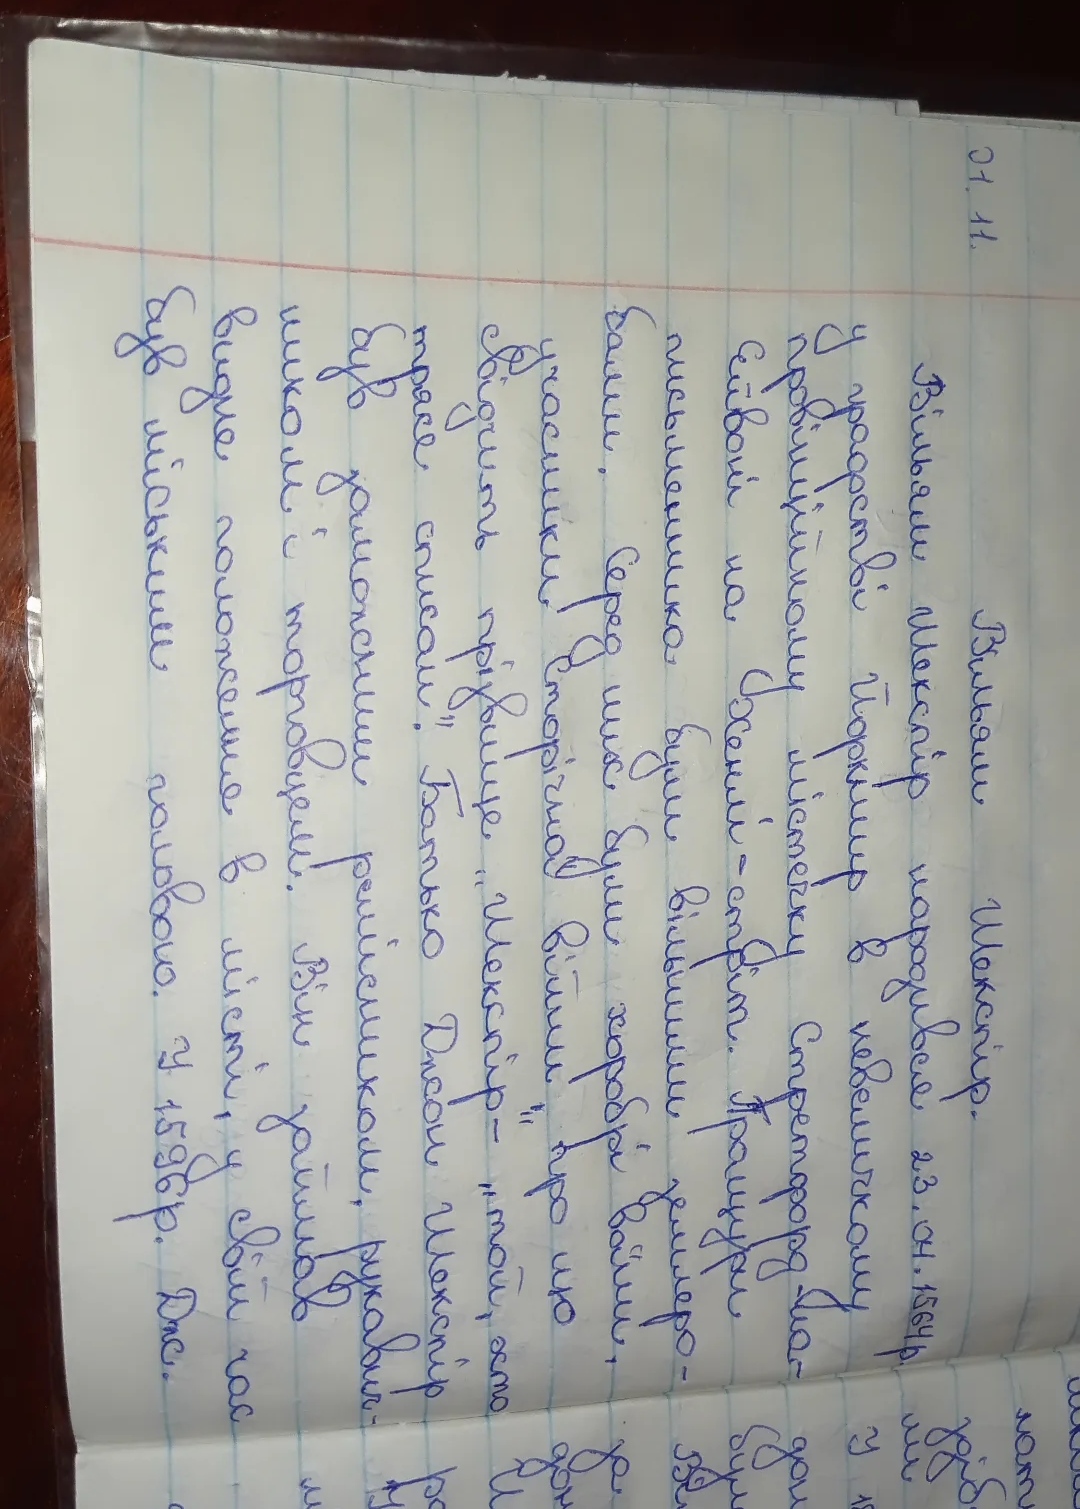 01.11.
Вільям Шекспір.
Вільям Шекспір народився 23.04.1564р.
у графстві Йоркшир в невеличкому
провінційному містечку Стретфорд-на-
Ейвоні на Генлі-стріт. Пращури
письменника були вільними землеро-
бами. Серед них були хоробрі воїни,
учасники Сторічної війни, про що
свідчить прізвище „Шекспір"- „той, хто
трясе списом". Батько Джон Шекспір
був заможним ремісником, рукавич-
ником і торговцем. Він займав
видне положення в місті, у свій час
був міським головою. У 1596р. Дж.